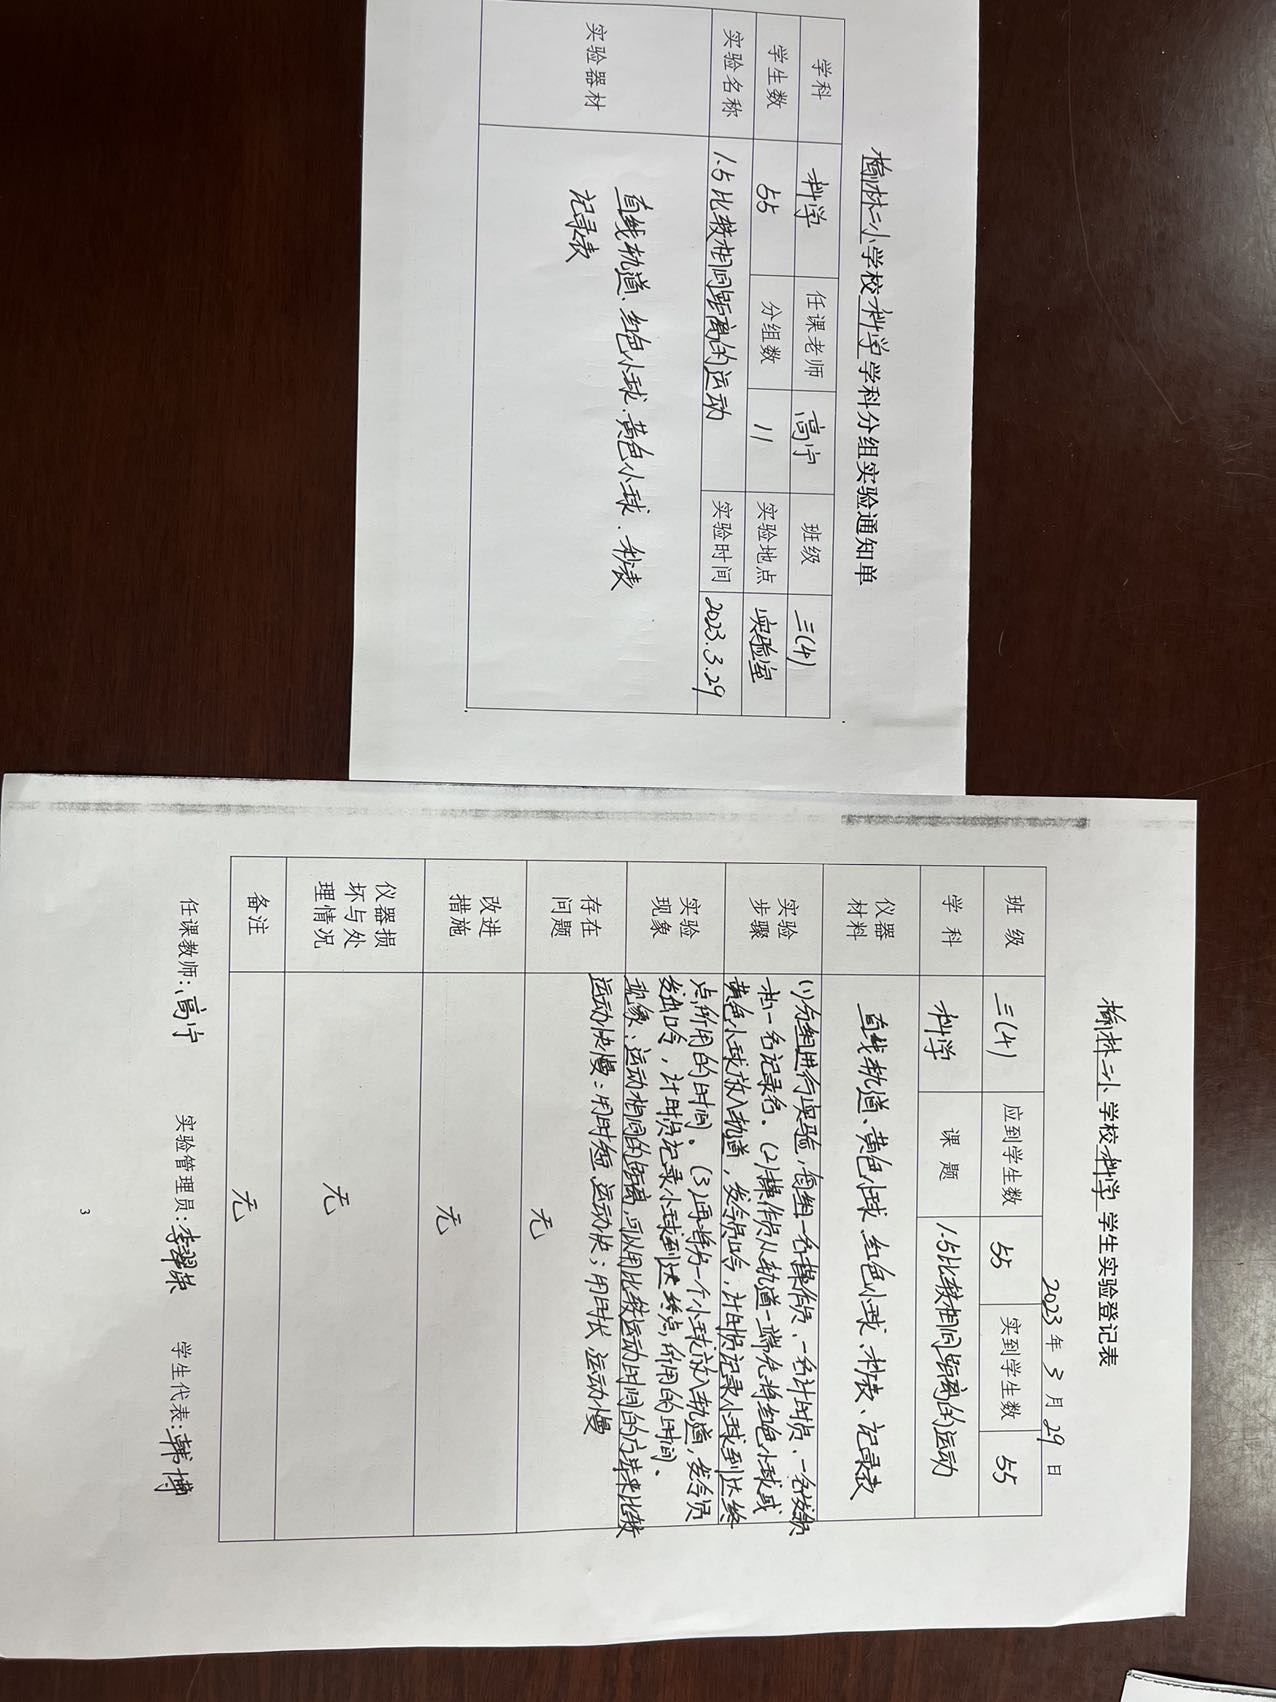 榆林二小学校科学学科分组实验通知单
学科 科学 任课老师 高宁 班级 三(4)
学生数 55 分组数 11 实验地点 实验室
实验名称 1.5比较相同距离的运动 实验时间 2023.3.29
实验器材
直线轨道、红色小球、黄色小球、秒表
记录表
榆林二小学校科学学生实验登记表
2023年3月29日
班级 三(4) 应到学生数 55 实到学生数 55
学科 科学 课题 1.5比较相同距离的运动
仪器材料 直线轨道、黄色小球、红色小球、秒表、记录表
实验步骤
(1)分组进行实验,每组一名操作员、一名计时员、一名发令员
和一名记录名。(2)操作员从轨道一端先将红色小球或
黄色小球放入轨道,发令员口令,计时员记录小球到达终
实验现象
点所用的时间。(3)再将另一个小球放入轨道,发令员
发出口令,计时员记录小球到达终点所用的时间。
现象:运动相同的距离,可以用比较运动时间的方法来比较
运动快慢:用时短运动快;用时长运动慢
存在问题 无
改进措施 无
仪器损坏与处理情况 无
备注 无
任课教师:高宁 实验管理员:李翠荣 学生代表:韩博
3